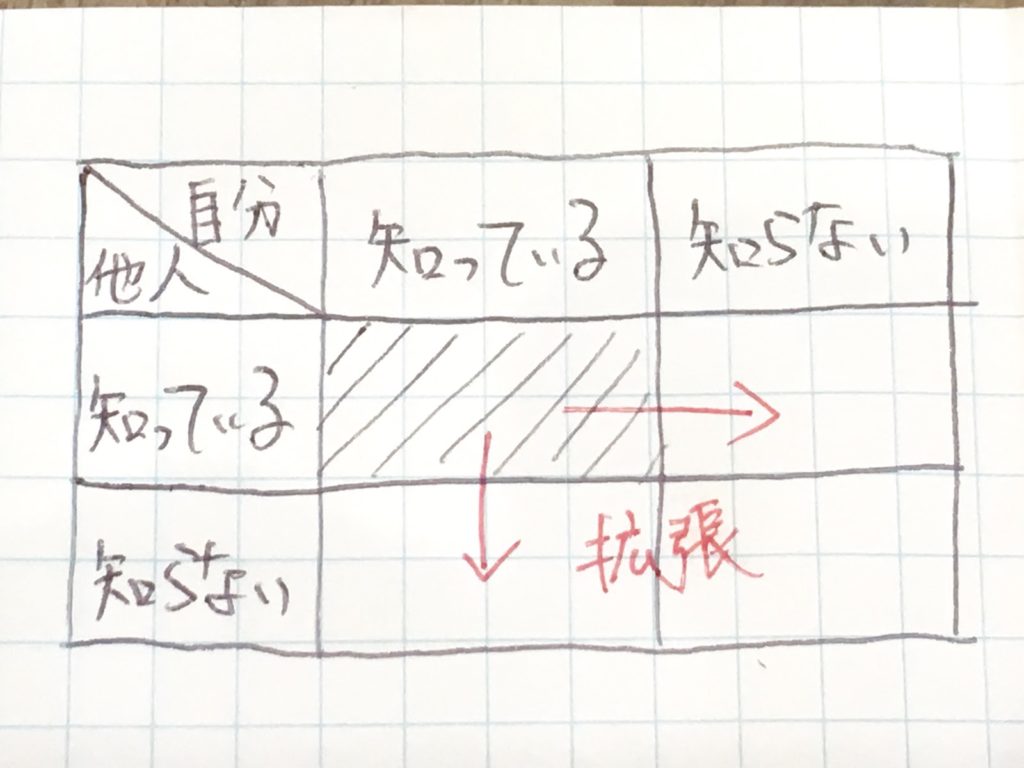 自分
他人
知っている
知らない
知っている
知らない
拡張